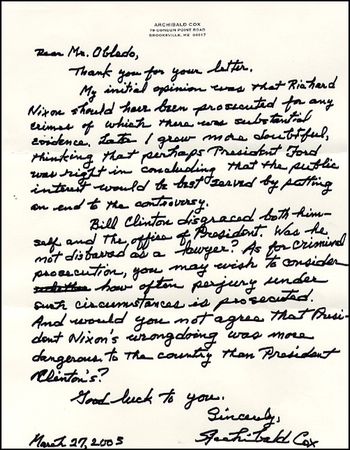 ARCHIBALD COX
BROOKSVILLE, ME
Dear Mr. Obledo,
Thank you for your letter.
My initial opinion was that Richard
Nixon should have been prosecuted for any
crimes of which there was substantial
evidence. Later I grew more doubtful,
thinking that perhaps President Ford
was right in concluding that the public
interest would be best served by putting
an end to the controversy.
Bill Clinton disgraced both him-
self and the office of President. Was he
not disbared as a lawyer? As for criminal
prosecution, you may wish to consider
how often perjury under
such circumstances is prosecuted.
And would you not agree that Presi-
dent Nixon's wrongdoing was more
dangerous to the country than President
Clinton's?
Good luck to you.
Sincerely,
Archibald Cox
March 27, 2003